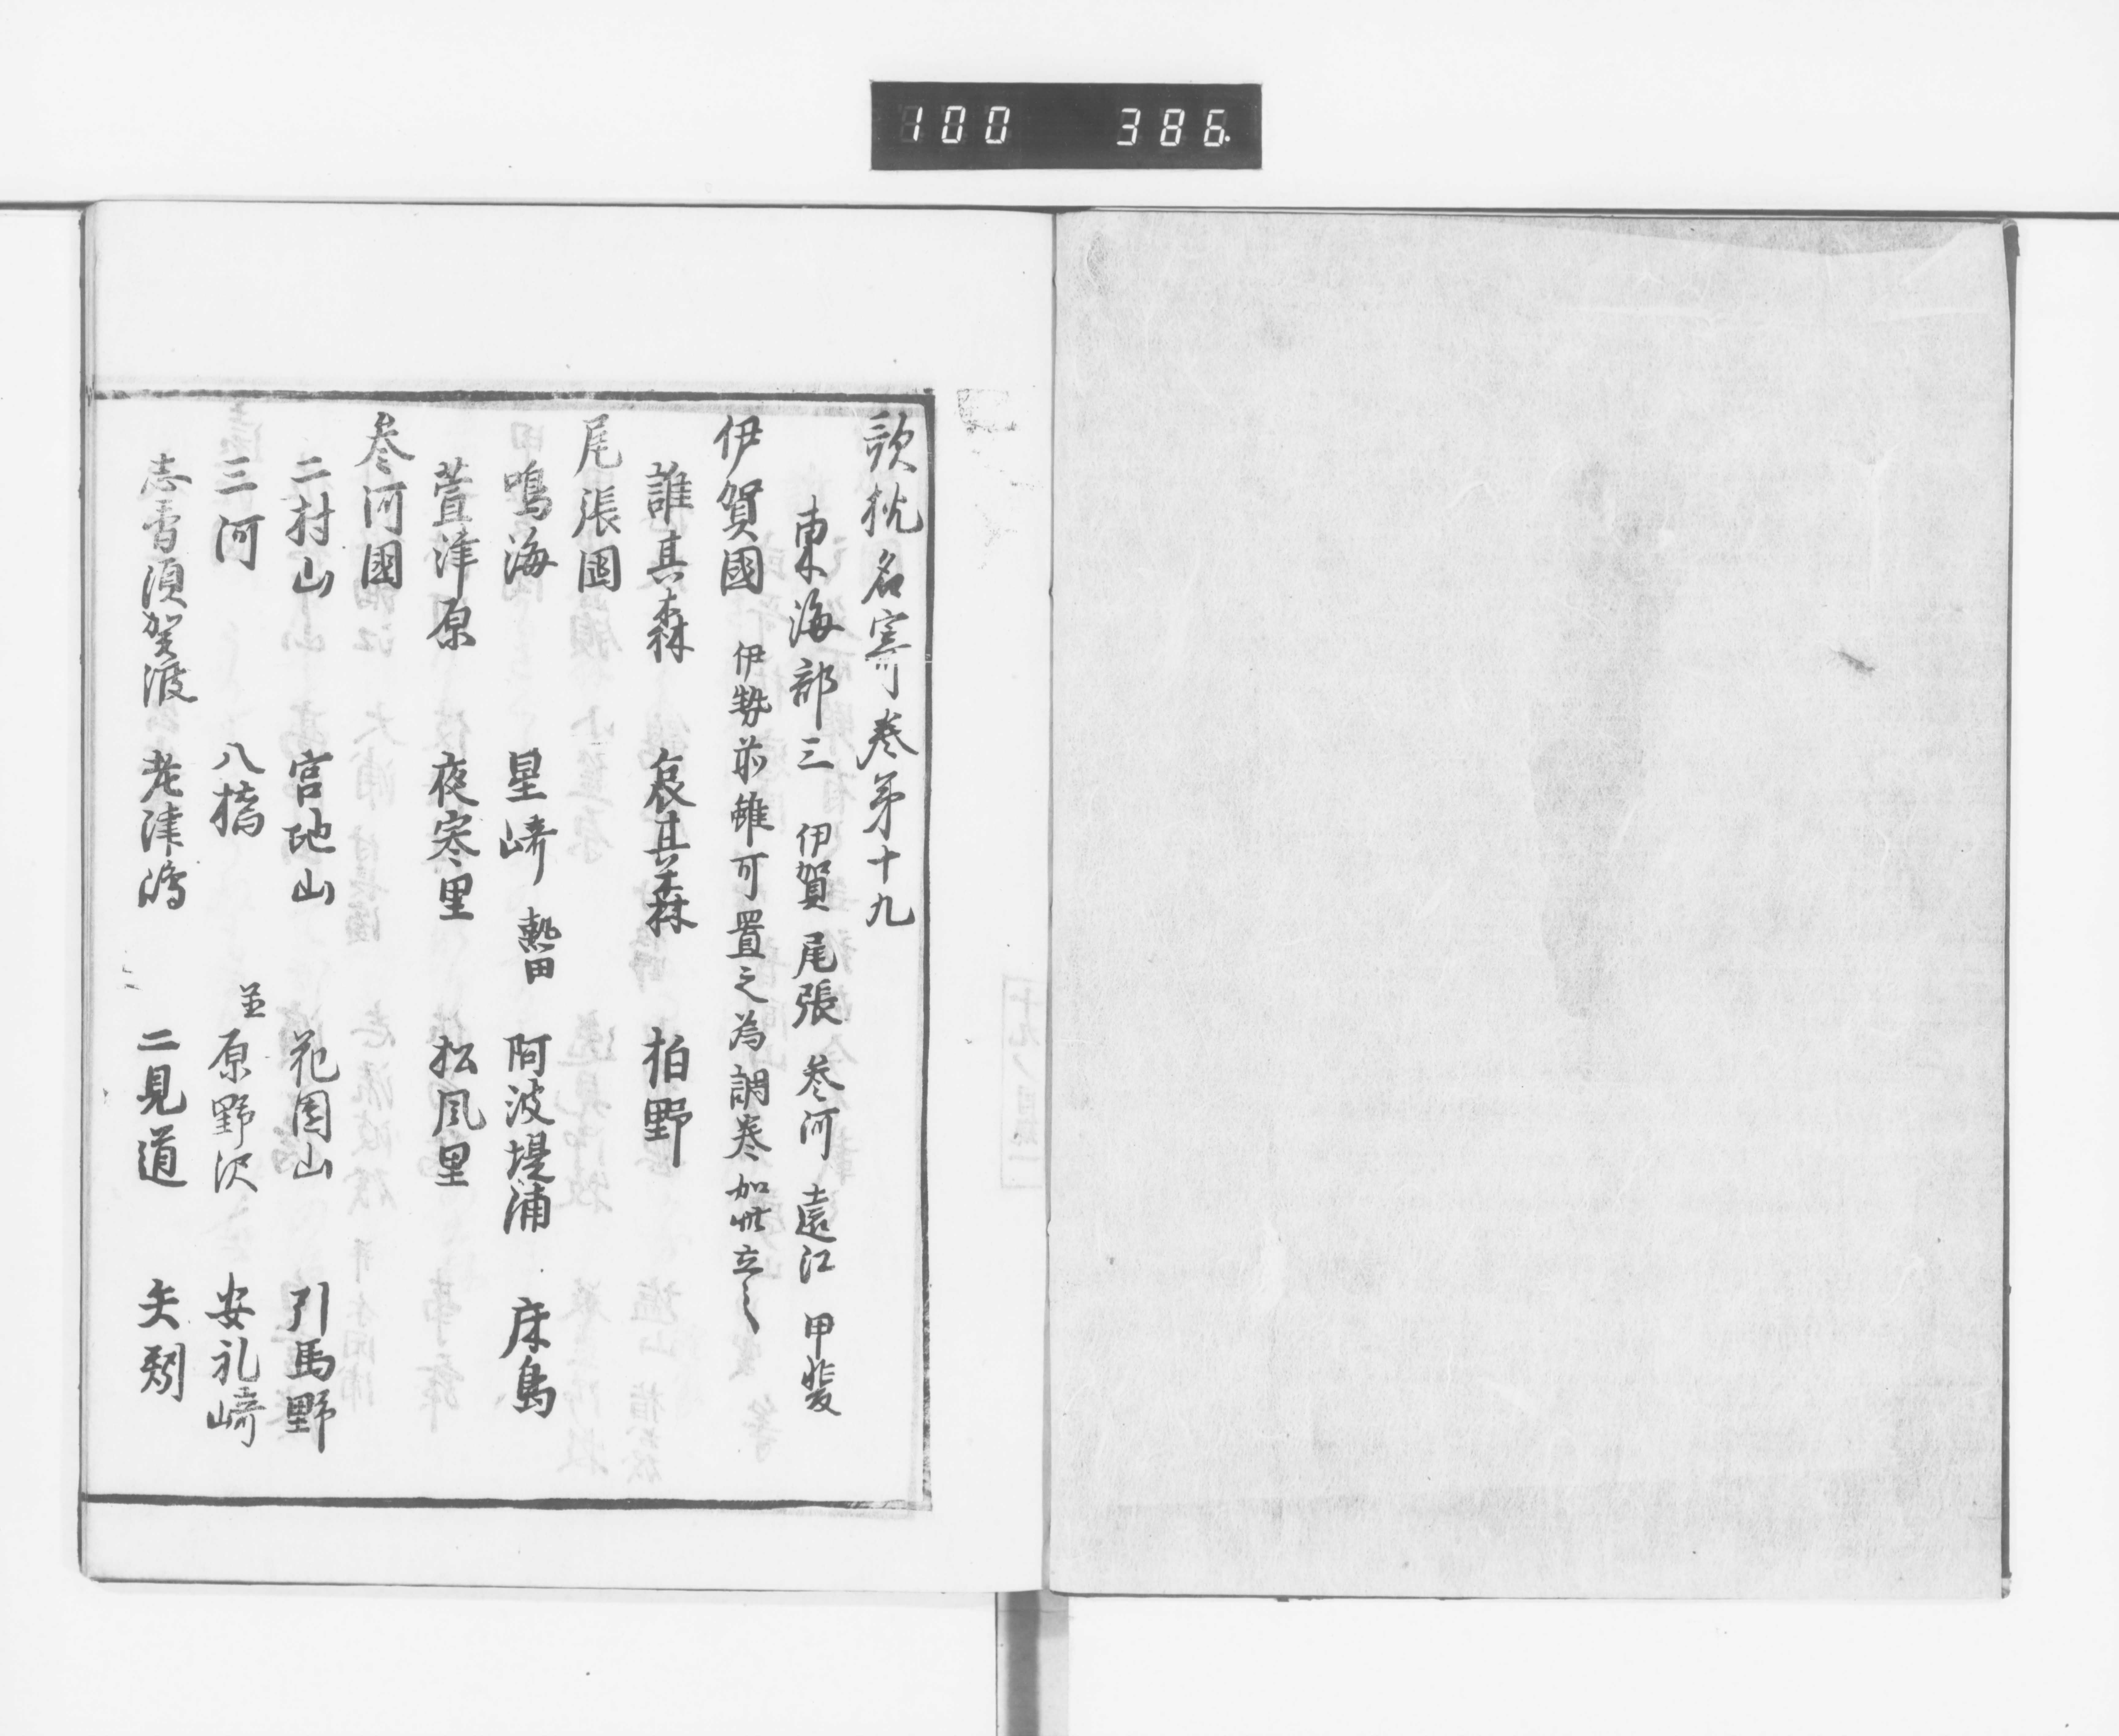 100 386
歌枕名寄巻第十九
東海部三 伊賀 尾張 参河 遠江 甲斐
伊賀國 伊勢前雖可置之為調巻如此立之
誰其森 哀其森 柏野
尾張国
鳴海 星崎 熱田 阿波堤浦 床島
萱津原 夜寒里 松風里
参河國
二村山 宮地山 花園山 引馬野
三河 八橋 並原野沢 安礼崎
志香須賀渡 老津嶋 二見道 矢矧